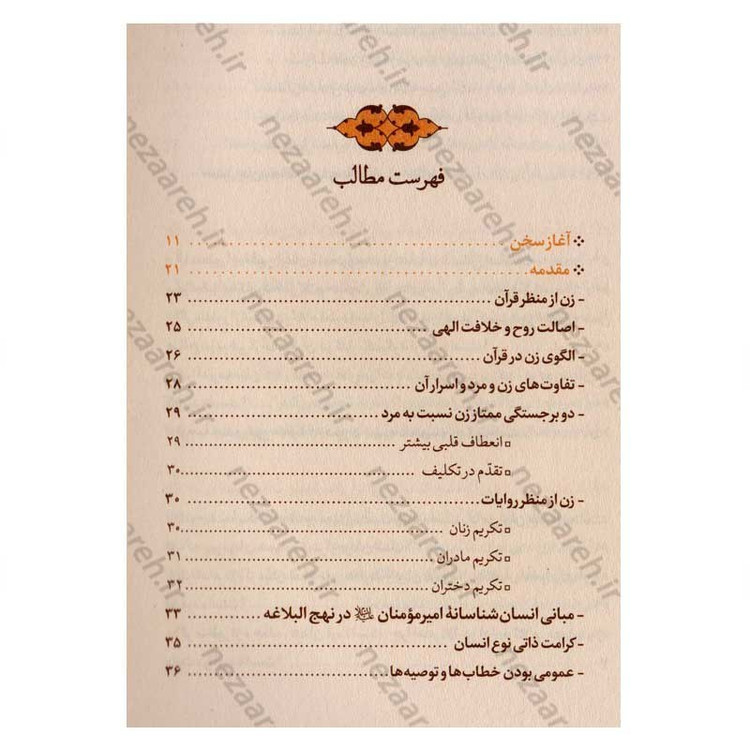 فهرست مطالب
❖ آغاز سخن ........ ۱۱
❖ مقدمه ........ ۲۱
- زن از منظر قرآن ........ ۲۳
- اصالت روح و خلافت الهی ........ ۲۵
- الگوی زن در قرآن ........ ۲۶
- تفاوت‌های زن و مرد و اسرار آن ........ ۲۸
- دو برجستگی ممتاز زن نسبت به مرد ........ ۲۹
▫ انعطاف قلبی بیشتر ........ ۲۹
▫ تقدّم در تکلیف ........ ۳۰
- زن از منظر روایات ........ ۳۰
▫ تکریم زنان ........ ۳۰
▫ تکریم مادران ........ ۳۱
▫ تکریم دختران ........ ۳۲
- مبانی انسان شناسانهٔ امیرمؤمنان در نهج البلاغه ........ ۳۳
- کرامت ذاتی نوع انسان ........ ۳۵
- عمومی بودن خطاب‌ها و توصیه‌ها ........ ۳۶
nezaareh.ir